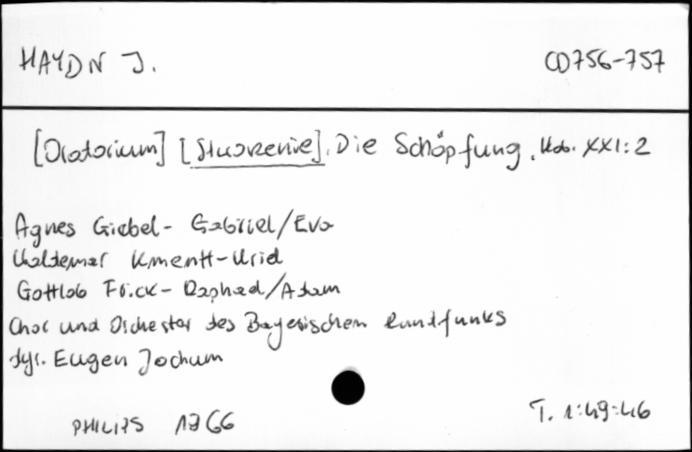 HAYDN J. CD756-757
[Oratorium] [Stworzenie]. Die Schöpfung. Hob. XXI:2
Agnes Giebel - Gabriel/Eva
Waldemar Kmentt - Uriel
Gottlob Frick - Raphael/Adam
Chor und Orchester des Bayerischen Rundfunks
dyr. Eugen Jochum
PHILIPS 1966 T. 1:49:46